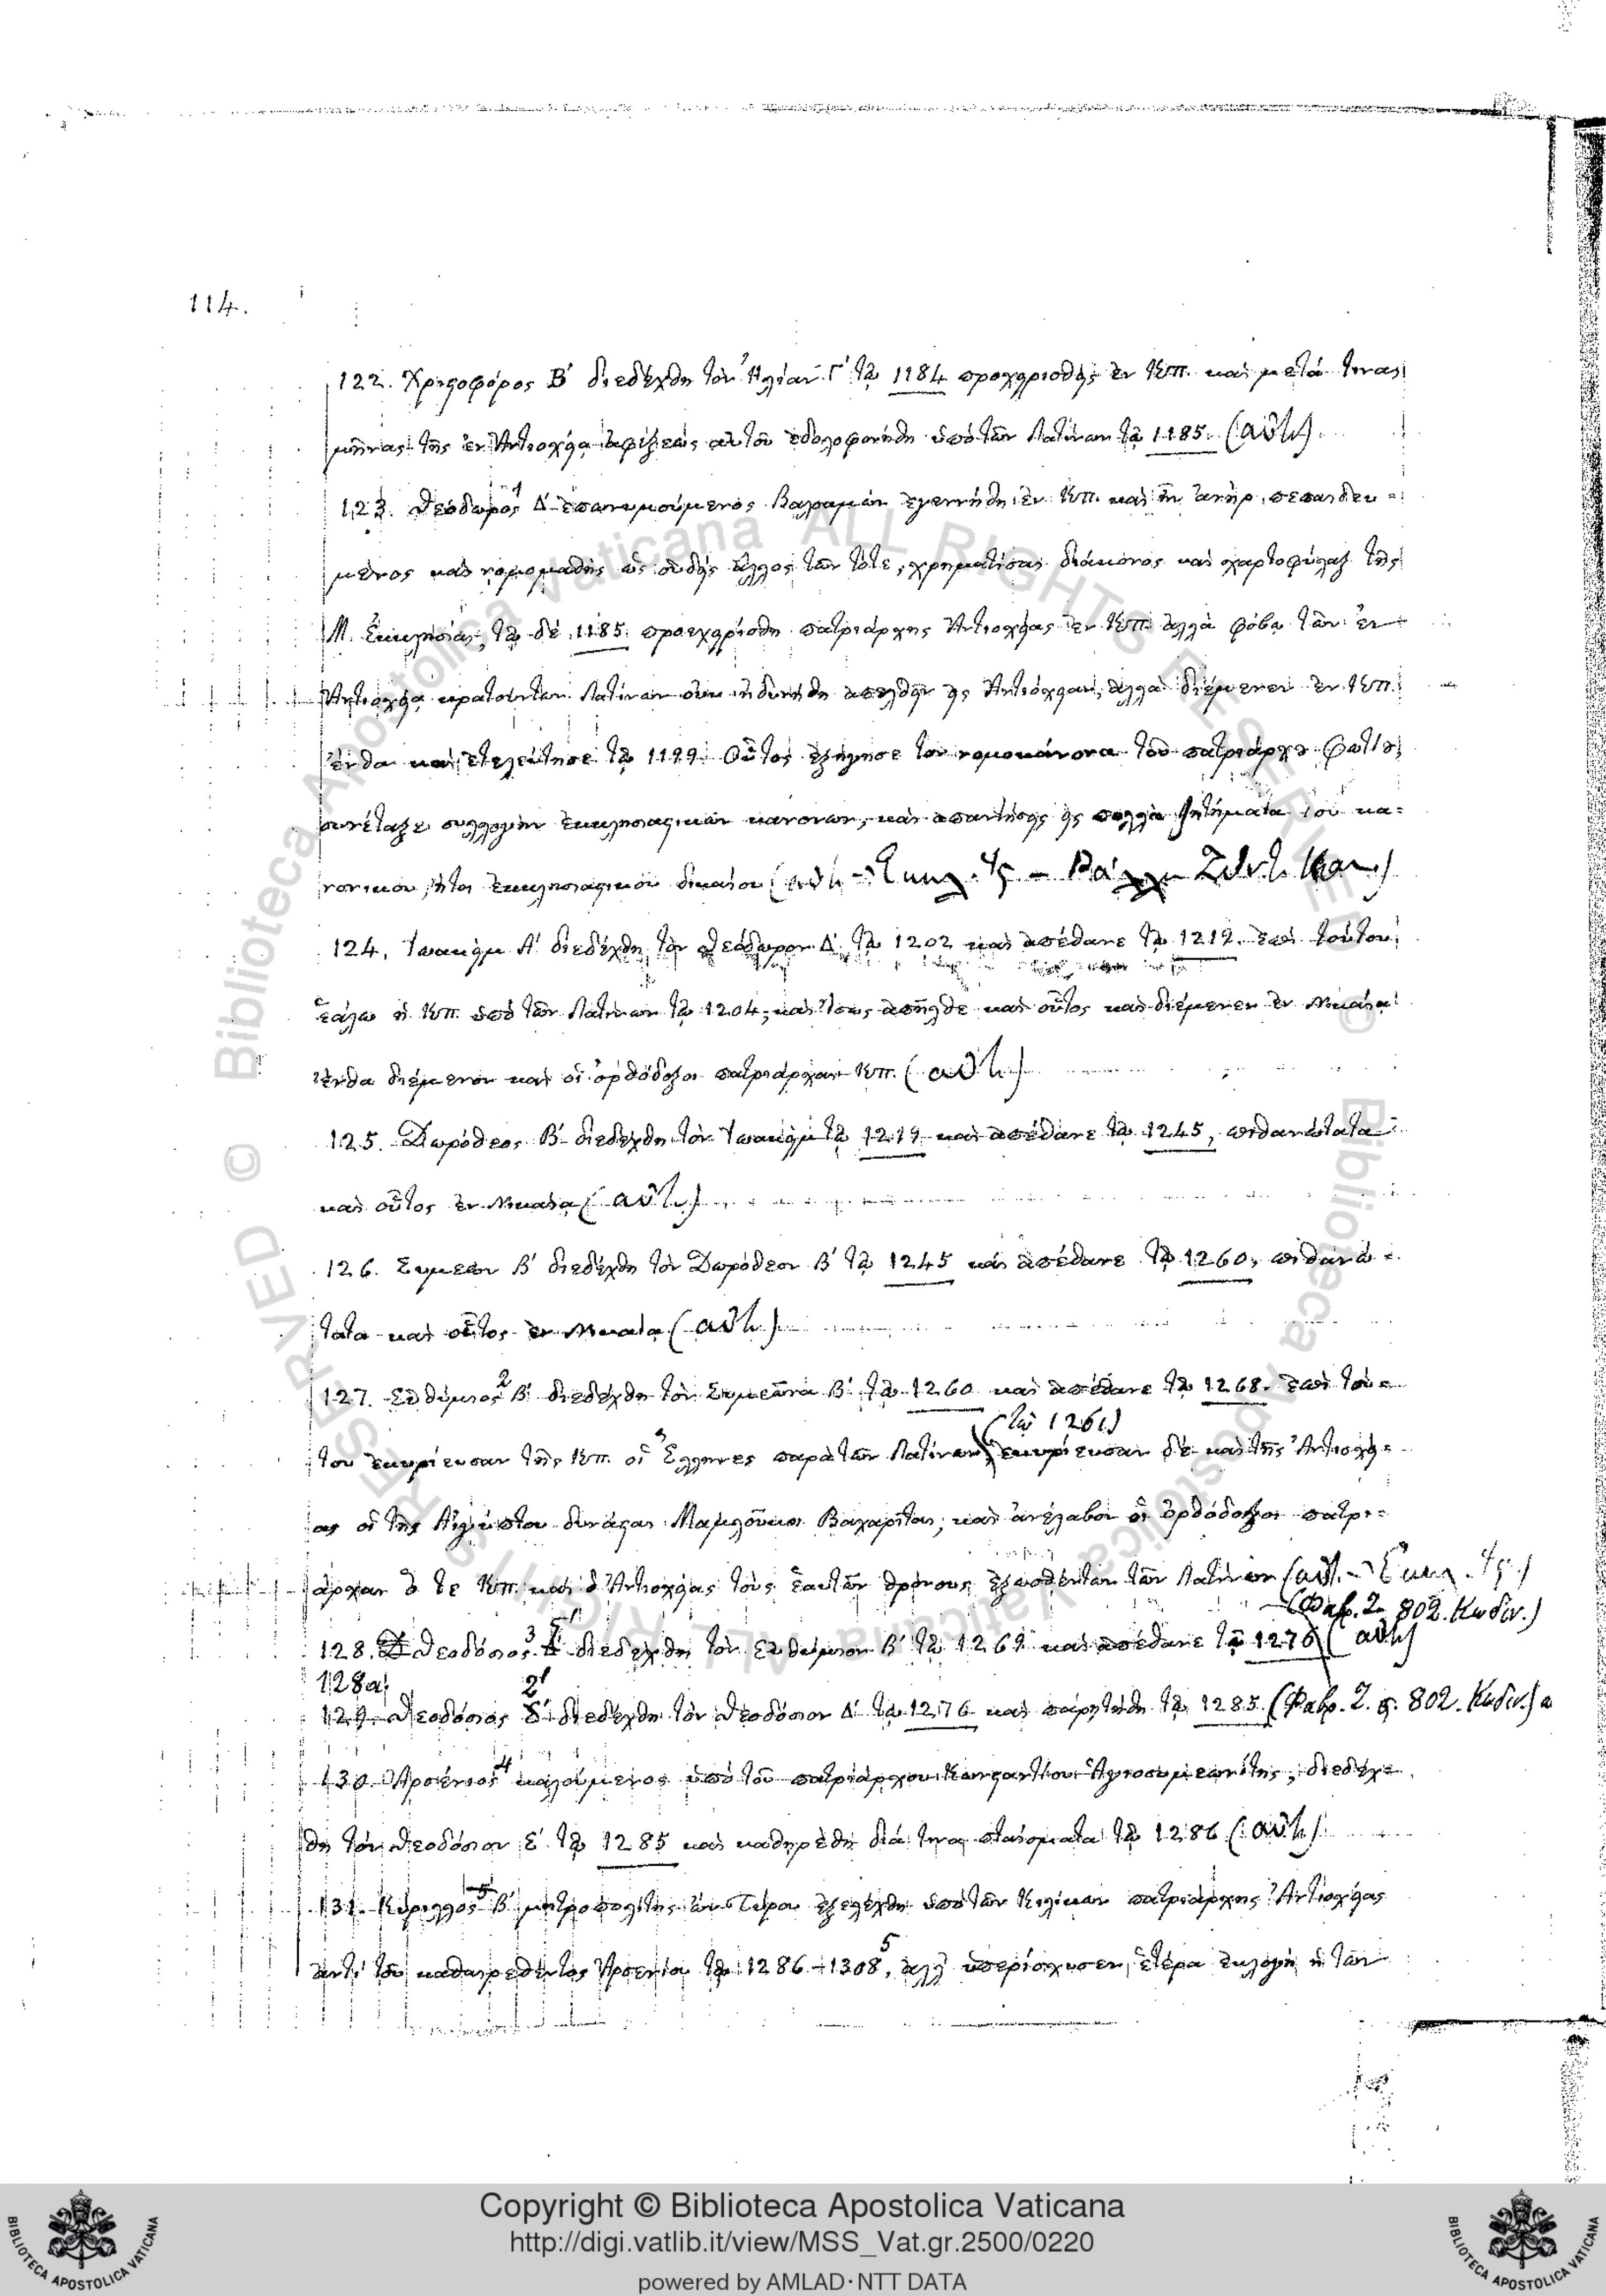 114.
122. Χριστοφόρος Β′ διεδέχθη τὸν Ἠλίαν Γ′ τῷ 1184 προχειρισθεὶς ἐν Κπ. καὶ μετά τινας
μῆνας τῆς ἐν Ἀντιοχείᾳ ἀφίξεώς αὐτοῦ ἐδολοφονήθη ὑπὸ τῶν Λατίνων τῷ 1185. (αὐτ)
123. Θεόδωρος Δ′ ἐπονομούμενος Βαλσαμὼν ἐγεννήθη ἐν Κπ. καὶ ἦν ἀνὴρ πεπαιδευ=
μένος καὶ νομομαθὴς ὡς οὐδεὶς ἄλλος τῶν τότε, χρηματίσας διάκονος καὶ χαρτοφύλαξ τῆς
Μ. Ἐκκλησίας, τῷ δὲ 1185 προεχειρίσθη πατριάρχης Ἀντιοχείας ἐν Κπ. ἀλλὰ φόβῳ τῶν ἐν
Ἀντιοχείᾳ κρατούντων Λατίνων οὐκ ἠδυνήθη ἀπελθεῖν εἰς Ἀντιόχειαν, ἀλλὰ διέμενεν ἐν Κπ.
ἔνθα καὶ ἐτελεύτησε τῷ 1199. Οὗτος ἐξήγησε τὸν νομοκάνονα τοῦ πατριάρχου Φωτίου,
συνέταξε συλλογὴν ἐκκλησιαστικῶν κανόνων, καὶ ἀπαντήσεις εἰς πολλὰ ζητήματα τοῦ κα=
νονικοῦ ἤτοι ἐκκλησιαστικοῦ δικαίου
124. Ἰωακεὶμ Α′ διεδέχθη τὸν Θεόδωρον Δ′ τῷ 1202 καὶ ἀπέθανε τῷ 1219. ἐπὶ τούτου
ἑάλω ἡ Κπ. ὑπὸ τῶν Λατίνων τῷ 1204, καὶ ἴσως ἀπῆλθε καὶ οὗτος καὶ διέμενεν ἐν Νικαίᾳ
ἔνθα διέμενον καὶ οἱ ὀρθόδοξοι πατριάρχαι Κπ. (αὐτ)
125. Δωρόθεος Β′ διεδέχθη τὸν Ἰωακεὶμ τῷ 1219 καὶ ἀπέθανε τῷ 1245, πιθανώτατα
καὶ οὗτος ἐν Νικαίᾳ (αὐτ)
126. Συμεὼν Β′ διεδέχθη τὸν Δωρόθεον Β′ τῷ 1245 καὶ ἀπέθανε τῷ 1260, πιθανώ=
τατα καὶ οὗτος ἐν Νικαίᾳ (αὐτ)
127. Εὐθύμιος 2 Β′ διεδέχθη τὸν Συμεῶνα Β′ τῷ 1260 καὶ ἀπέθανε τῷ 1268. ἐπὶ τού=
(τῷ 1261)
του ἐκυρίευσαν τῆς Κπ. οἱ Ἕλληνες παρὰ τῶν Λατίνων, ἐκυρίευσαν δὲ καὶ τῆς Ἀντιοχεί=
ας οἱ τῆς Αἰγύπτου δυνάσται Μαμελοῦκοι Βαχαρῖται, καὶ ἀνέλαβον οἱ ὀρθόδοξοι πατρι=
άρχαι ὅ τε Κπ. καὶ ὁ Ἀντιοχείας τοὺς ἑαυτῶν θρόνους ἐξωσθέντων τῶν Λατίνων
(Φαβ. 2 802. Κωδιν.)
128. Θεοδόσιος 3 Δ′ διεδέχθη τὸν Εὐθύμιον Β′ τῷ 1269 καὶ ἀπέθανε τῷ 1276 (αὐτ)
128α
129. Θεοδόσιος διεδέχθη τὸν Θεοδόσιον Δ′ τῷ 1276 καὶ παρῃτήθη τῷ 1285 (Φαβρ. 2. σ. 802. Κωδιν.)
130. Ἀρσένιος 4 καλούμενος ὑπὸ τοῦ πατριάρχου Κωνσταντίου Ἁγιοσυμεωνίτης, διεδέχ=
θη τὸν Θεοδόσιον Ε′ τῷ 1285 καὶ καθῃρέθη διά τινα πταίσματα τῷ 1286 (αὐτ)
131. Κύριλλος Β′ μητροπολίτης ὢν Τύρου ἐξελέχθη ὑπὸ τῶν Κιλίκων πατριάρχης Ἀντιοχείας
ἀντὶ τοῦ καθαιρεθέντος Ἀρσενίου τῷ 1286-1308 5, ἀλλ' ὑπερίσχυσεν ἑτέρα ἐκλογὴ ἡ τῶν
© Biblioteca Apostolica Vaticana ALL RIGHTS RESERVED
Copyright © Biblioteca Apostolica Vaticana
http://digi.vatlib.it/view/MSS_Vat.gr.2500/0220
powered by AMLAD·NTT DATA
BIBLIOTECA APOSTOLICA VATICANA
BIBLIOTECA APOSTOLICA VATICANA